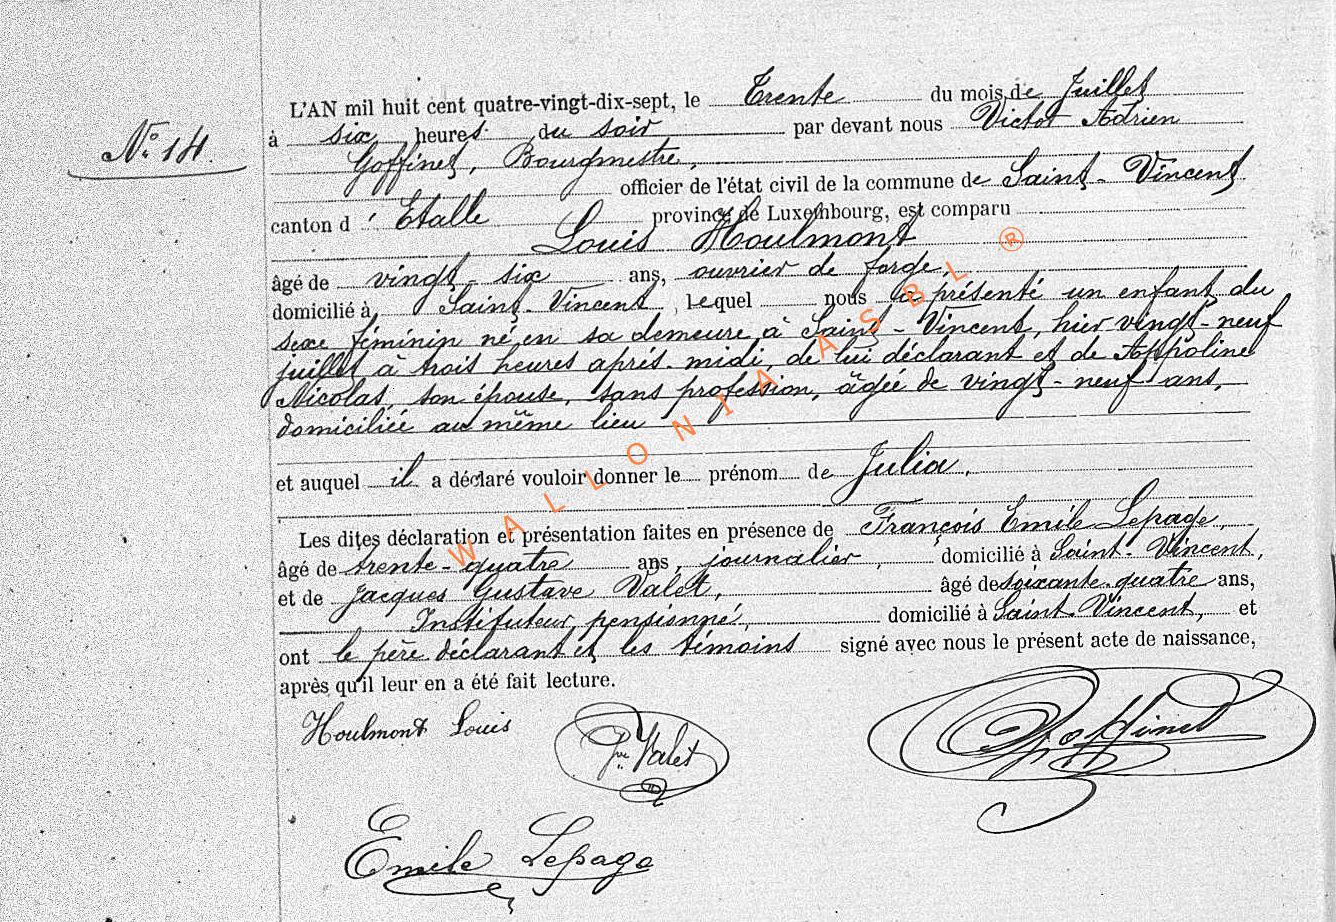 L'AN mil huit cent quatre-vingt-dix-sept, le Trente du mois de Juillet
N° 14.
à six heures du soir par devant nous Victor Adrien
Goffinet, Bourgmestre,
officier de l'état civil de la commune de Saint-Vincent
canton d'Etalle province de Luxembourg, est comparu
Louis Houlmont
âgé de vingt six ans, ouvrier de forge,
domicilié à Saint-Vincent, lequel nous a présenté un enfant du
sexe féminin né en sa demeure à Saint-Vincent, hier vingt-neuf
juillet à trois heures après-midi, de lui déclarant et de Appoline
Nicolas, son épouse, sans profession, âgée de vingt-neuf ans,
domiciliée au même lieu
et auquel il a déclaré vouloir donner le prénom de Julia.
Les dites déclaration et présentation faites en présence de François Emile Lepage,
âgé de trente-quatre ans, journalier, domicilié à Saint-Vincent,
et de Jacques Gustave Valet, âgé de soixante-quatre ans,
Instituteur pensionné, domicilié à Saint-Vincent, et
ont le père déclarant et les témoins signé avec nous le présent acte de naissance,
après qu'il leur en a été fait lecture.
Houlmont Louis Valet Goffinet
Emile Lepage
WALLONIA ASBL ®